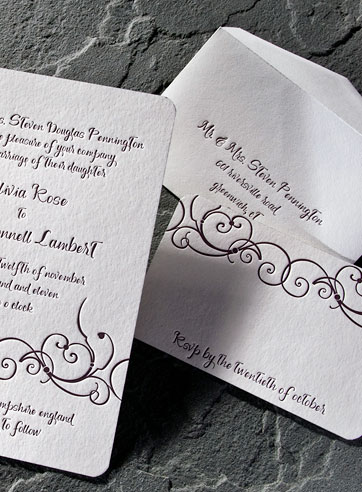 s. Steven Douglas Pennington
e pleasure of your company,
arriage of their daughter
livia Rose
to
nnell Lambert
twelfth of november
and and eleven
o clock
mpshire england
to follow
Mr. & Mrs. Steven Pennington
601 riversville road
greenwich, ct
Rsvp by the twentieth of october